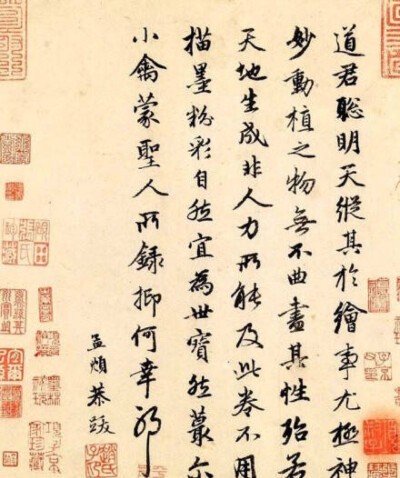 道君聪明天縱其於繪事尤極神
妙動植之物無不曲盡其性殆若
天地生成非人力所能及此卷不用
描墨粉彩自然宜為世寶然蕞尔
小禽蒙聖人所錄抑何幸耶
孟頫恭跋